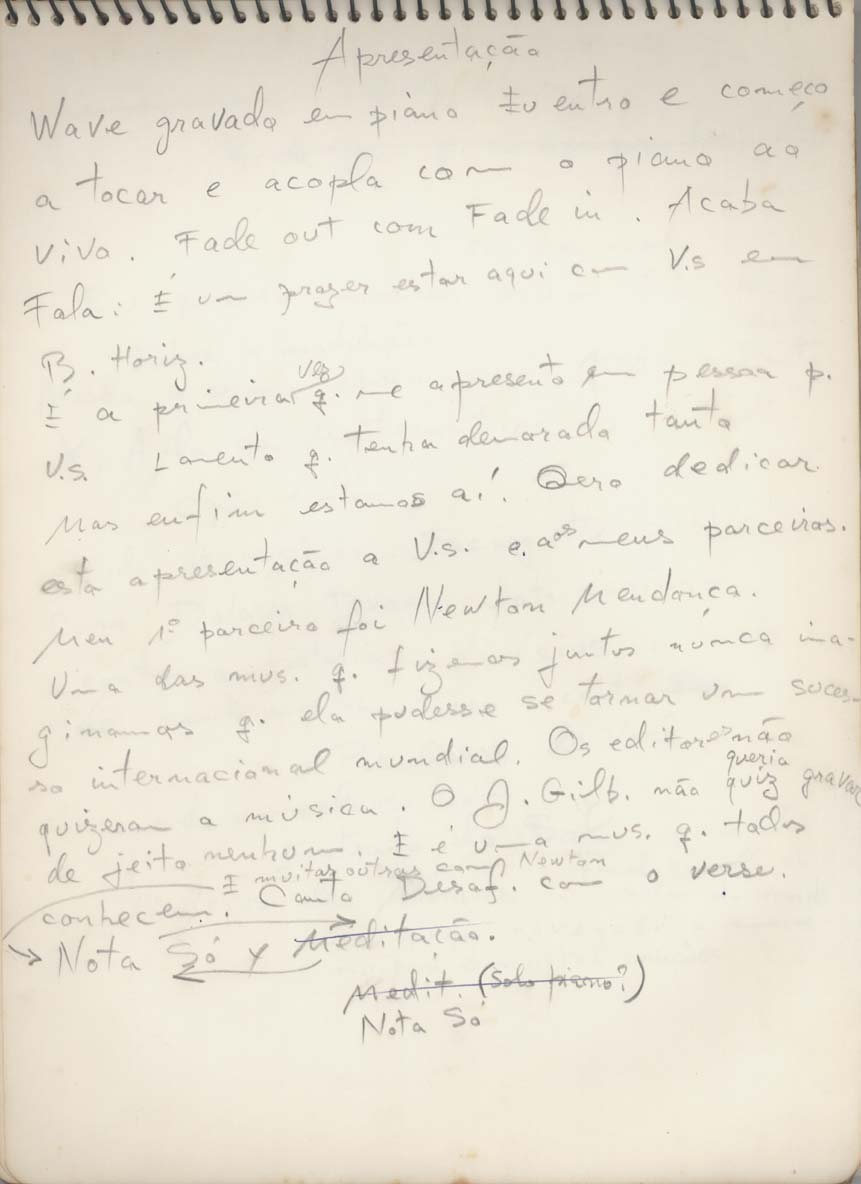 Apresentação
Wave gravado em piano Eu entro e começo
a tocar e acopla com o piano ao
vivo. Fade out com Fade in. Acaba
Fala: É um prazer estar aqui com V.s em
B. Horiz.
É a primeira vez q. me apresento em pessoa p.
V.s. Lamento q. tenha demorado tanto
Mas enfim estamos aí. Qero dedicar
esta apresentação a V.s. e aos meus parceiros.
Meu 1º parceiro foi Newton Mendonça.
Uma das mus. q. fizemos juntos nunca ima-
ginamos q. ela pudesse se tornar um suces-
so internacional mundial. Os editores não
quizeram a música. O J. Gilb. não quiz queria gravar
de jeito nenhum. E é uma mus. q. todos
conhecem. E muitas outras com Newton
Canto Desaf. com o verse.
→ Nota Só y Meditação.
Medit. (Solo piano?)
Nota Só